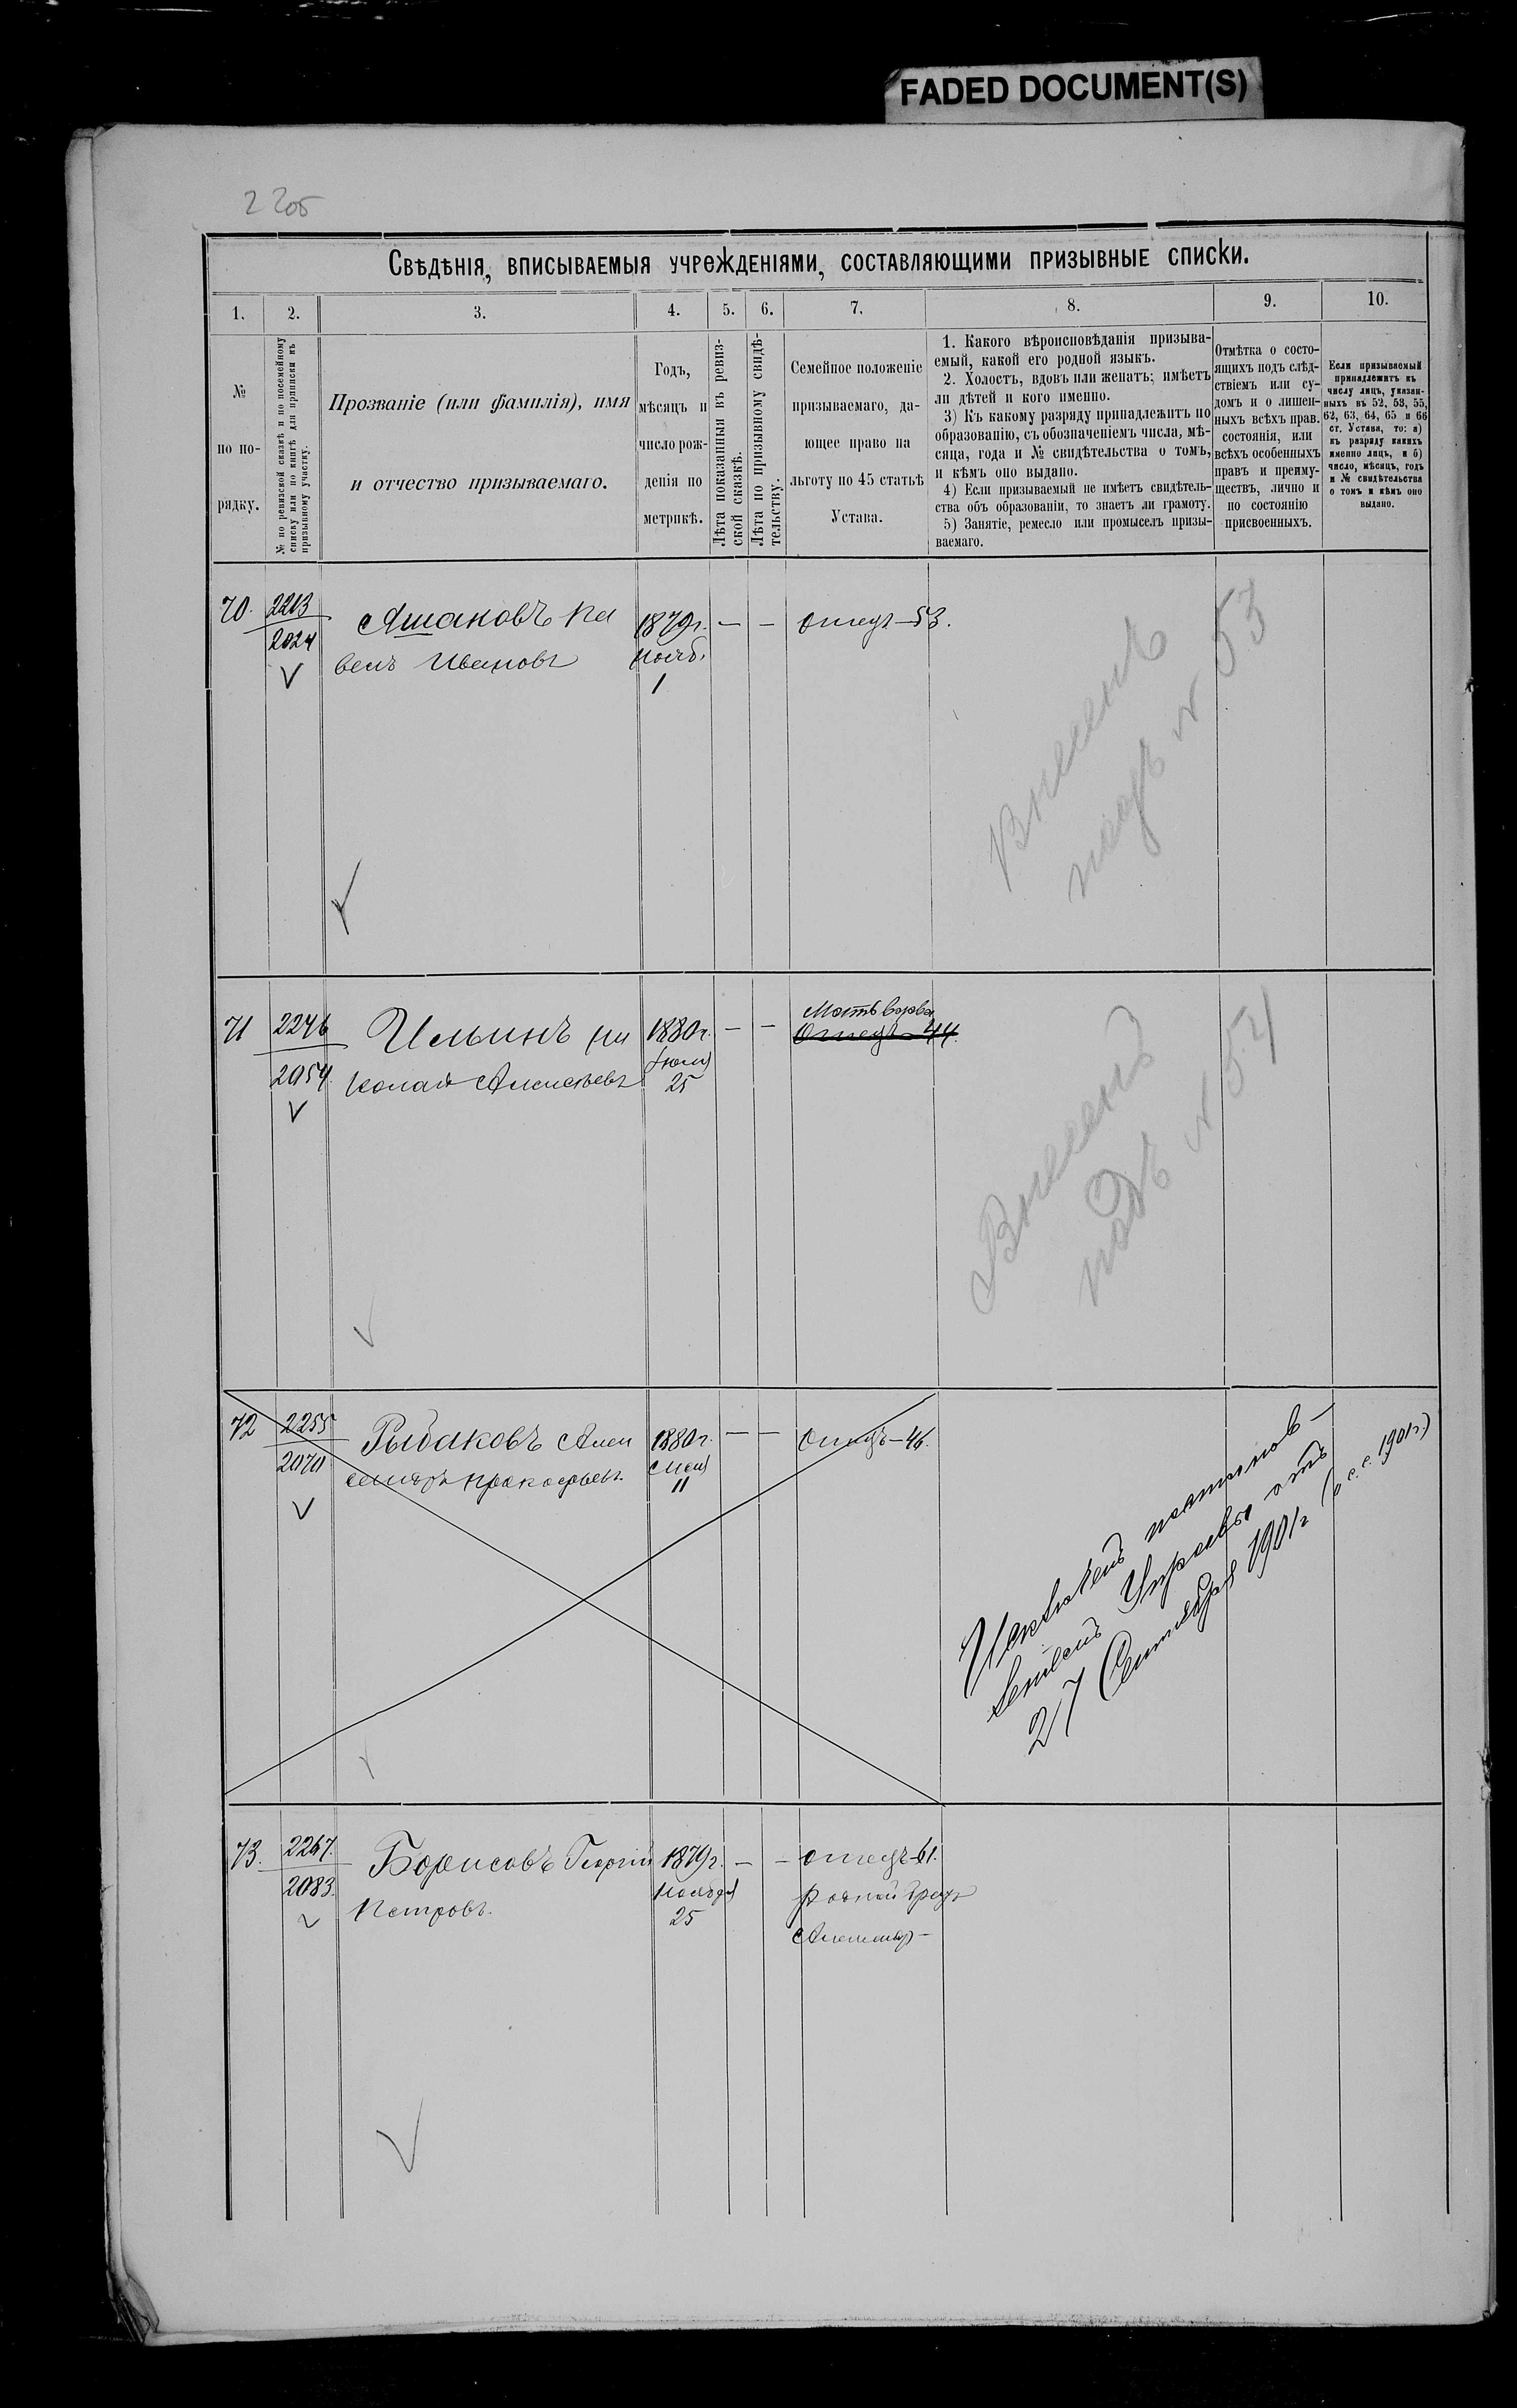 FADED DOCUMENT(S)
2 205
Свѣдѣнія, вписываемыя учрежденіями, составляющими призывные списки.
1.
2.
3.
4.
5.
6.
7.
8.
9.
10.
№
по по-
рядку.
№ по ревизской сказкѣ и по посемейному
списку или по книгѣ для приписки къ
призывному участку.
Прозваніе (или фамилія), имя
и отчество призываемаго.
Годъ,
мѣсяцъ и
число рож-
денія по
метрикѣ.
Лѣта показанныя въ ревиз-
ской сказкѣ.
Лѣта по призывному свидѣ-
тельству.
Семейное положеніе
призываемаго, да-
ющее право на
льготу по 45 статьѣ
Устава.
1. Какого вѣроисповѣданія призыва-
емый, какой его родной языкъ.
2. Холостъ, вдовъ или женатъ; имѣетъ
ли дѣтей и кого именно.
3) Къ какому разряду принадлежитъ по
образованію, съ обозначеніемъ числа, мѣ-
сяца, года и № свидѣтельства о томъ,
и кѣмъ оно выдано.
4) Если призываемый не имѣетъ свидѣтель-
ства объ образованіи, то знаетъ ли грамоту.
5) Занятіе, ремесло или промыселъ призы-
ваемаго.
Отмѣтка о состо-
ящихъ подъ слѣд-
ствіемъ или су-
домъ и о лишен-
ныхъ всѣхъ прав.
состоянія, или
всѣхъ особенныхъ
правъ и преиму-
ществъ, лично и
по состоянію
присвоенныхъ.
Если призываемый
принадлежитъ къ
числу лицъ, указан-
ныхъ въ 52, 53, 55,
62, 63, 64, 65 и 66
ст. Устава, то: а)
къ разряду какихъ
именно лицъ, и б)
число, мѣсяцъ, годъ
и № свидѣтельства
о томъ и кѣмъ оно
выдано.
70.
2213
2024
Ашаковъ Па
велъ Ивановъ
1879г.
Нояб.
1
—
—
Отецъ—53.
Внесенъ
подъ № 53
71
2246
2054
Ильинъ Ни
колай Алексѣевъ
1880г.
Іюля
25
—
—
Мать
Отецъ—44.
Внесенъ
подъ № 54
72
2255
2070
Рыбаковъ Алек
сандръ Прокофьевъ
1880г.
Мая
11
—
—
Отецъ—46.
Исключенъ постанов-
леніемъ Управы отъ
27 Сентября 1901г
73.
2267.
2083.
Борисовъ Георгій
Петровъ.
1879г.
Ноября
25
—
—
Отецъ—61.
Родной братъ